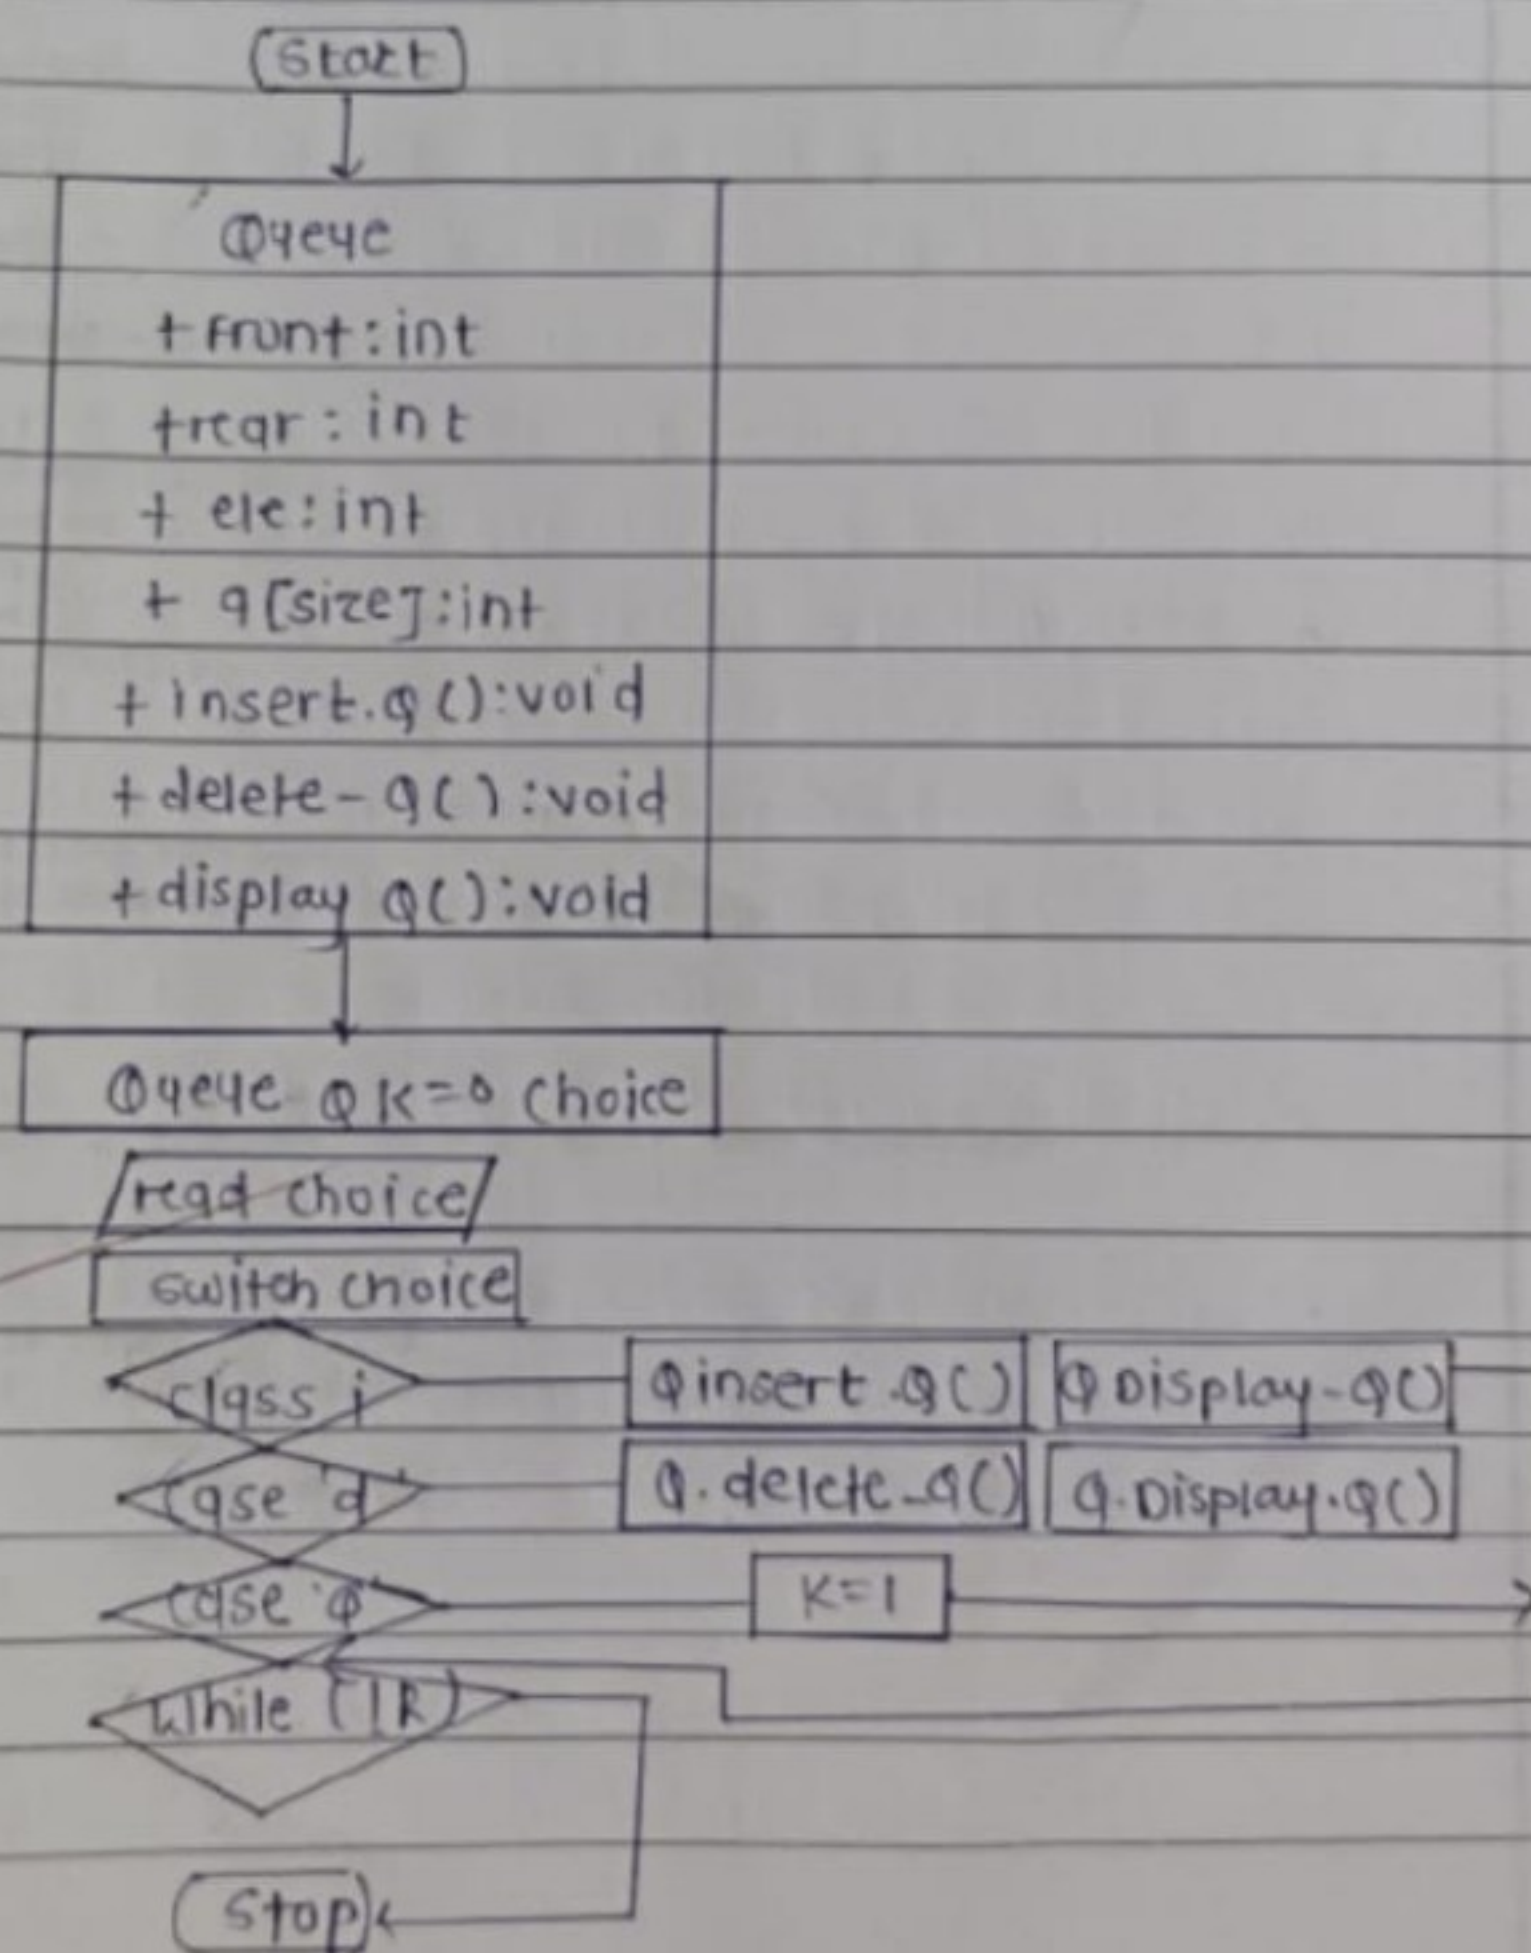 Start
Queue
+ Front : int
+ rear : int
+ ele : int
+ q[size] : int
+ insert.Q() : void
+ delete-Q() : void
+ display Q() : void
Queue Q K=0 choice
read choice
switch choice
class i Q insert.Q() Q Display-Q()
case 'd' Q.delete_Q() Q.Display.Q()
case 'Q' K=1
while (1R)
Stop